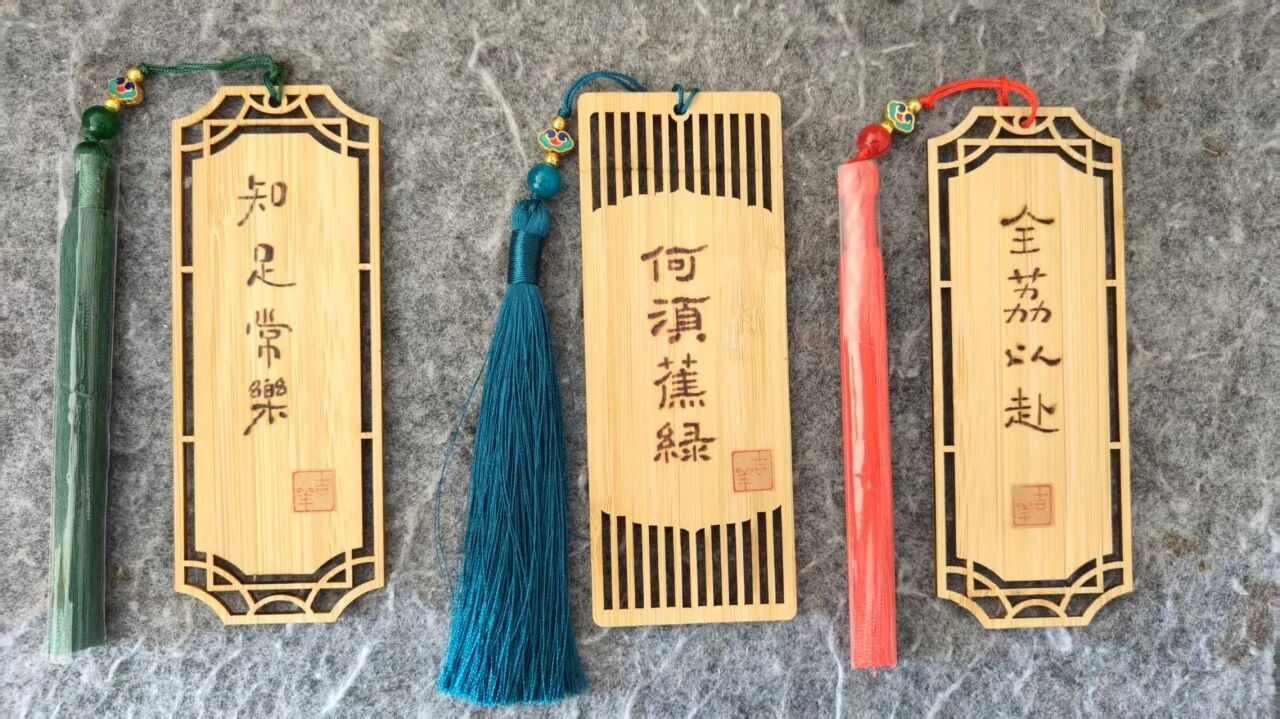 知足常樂
何須蕉綠
全荔以赴